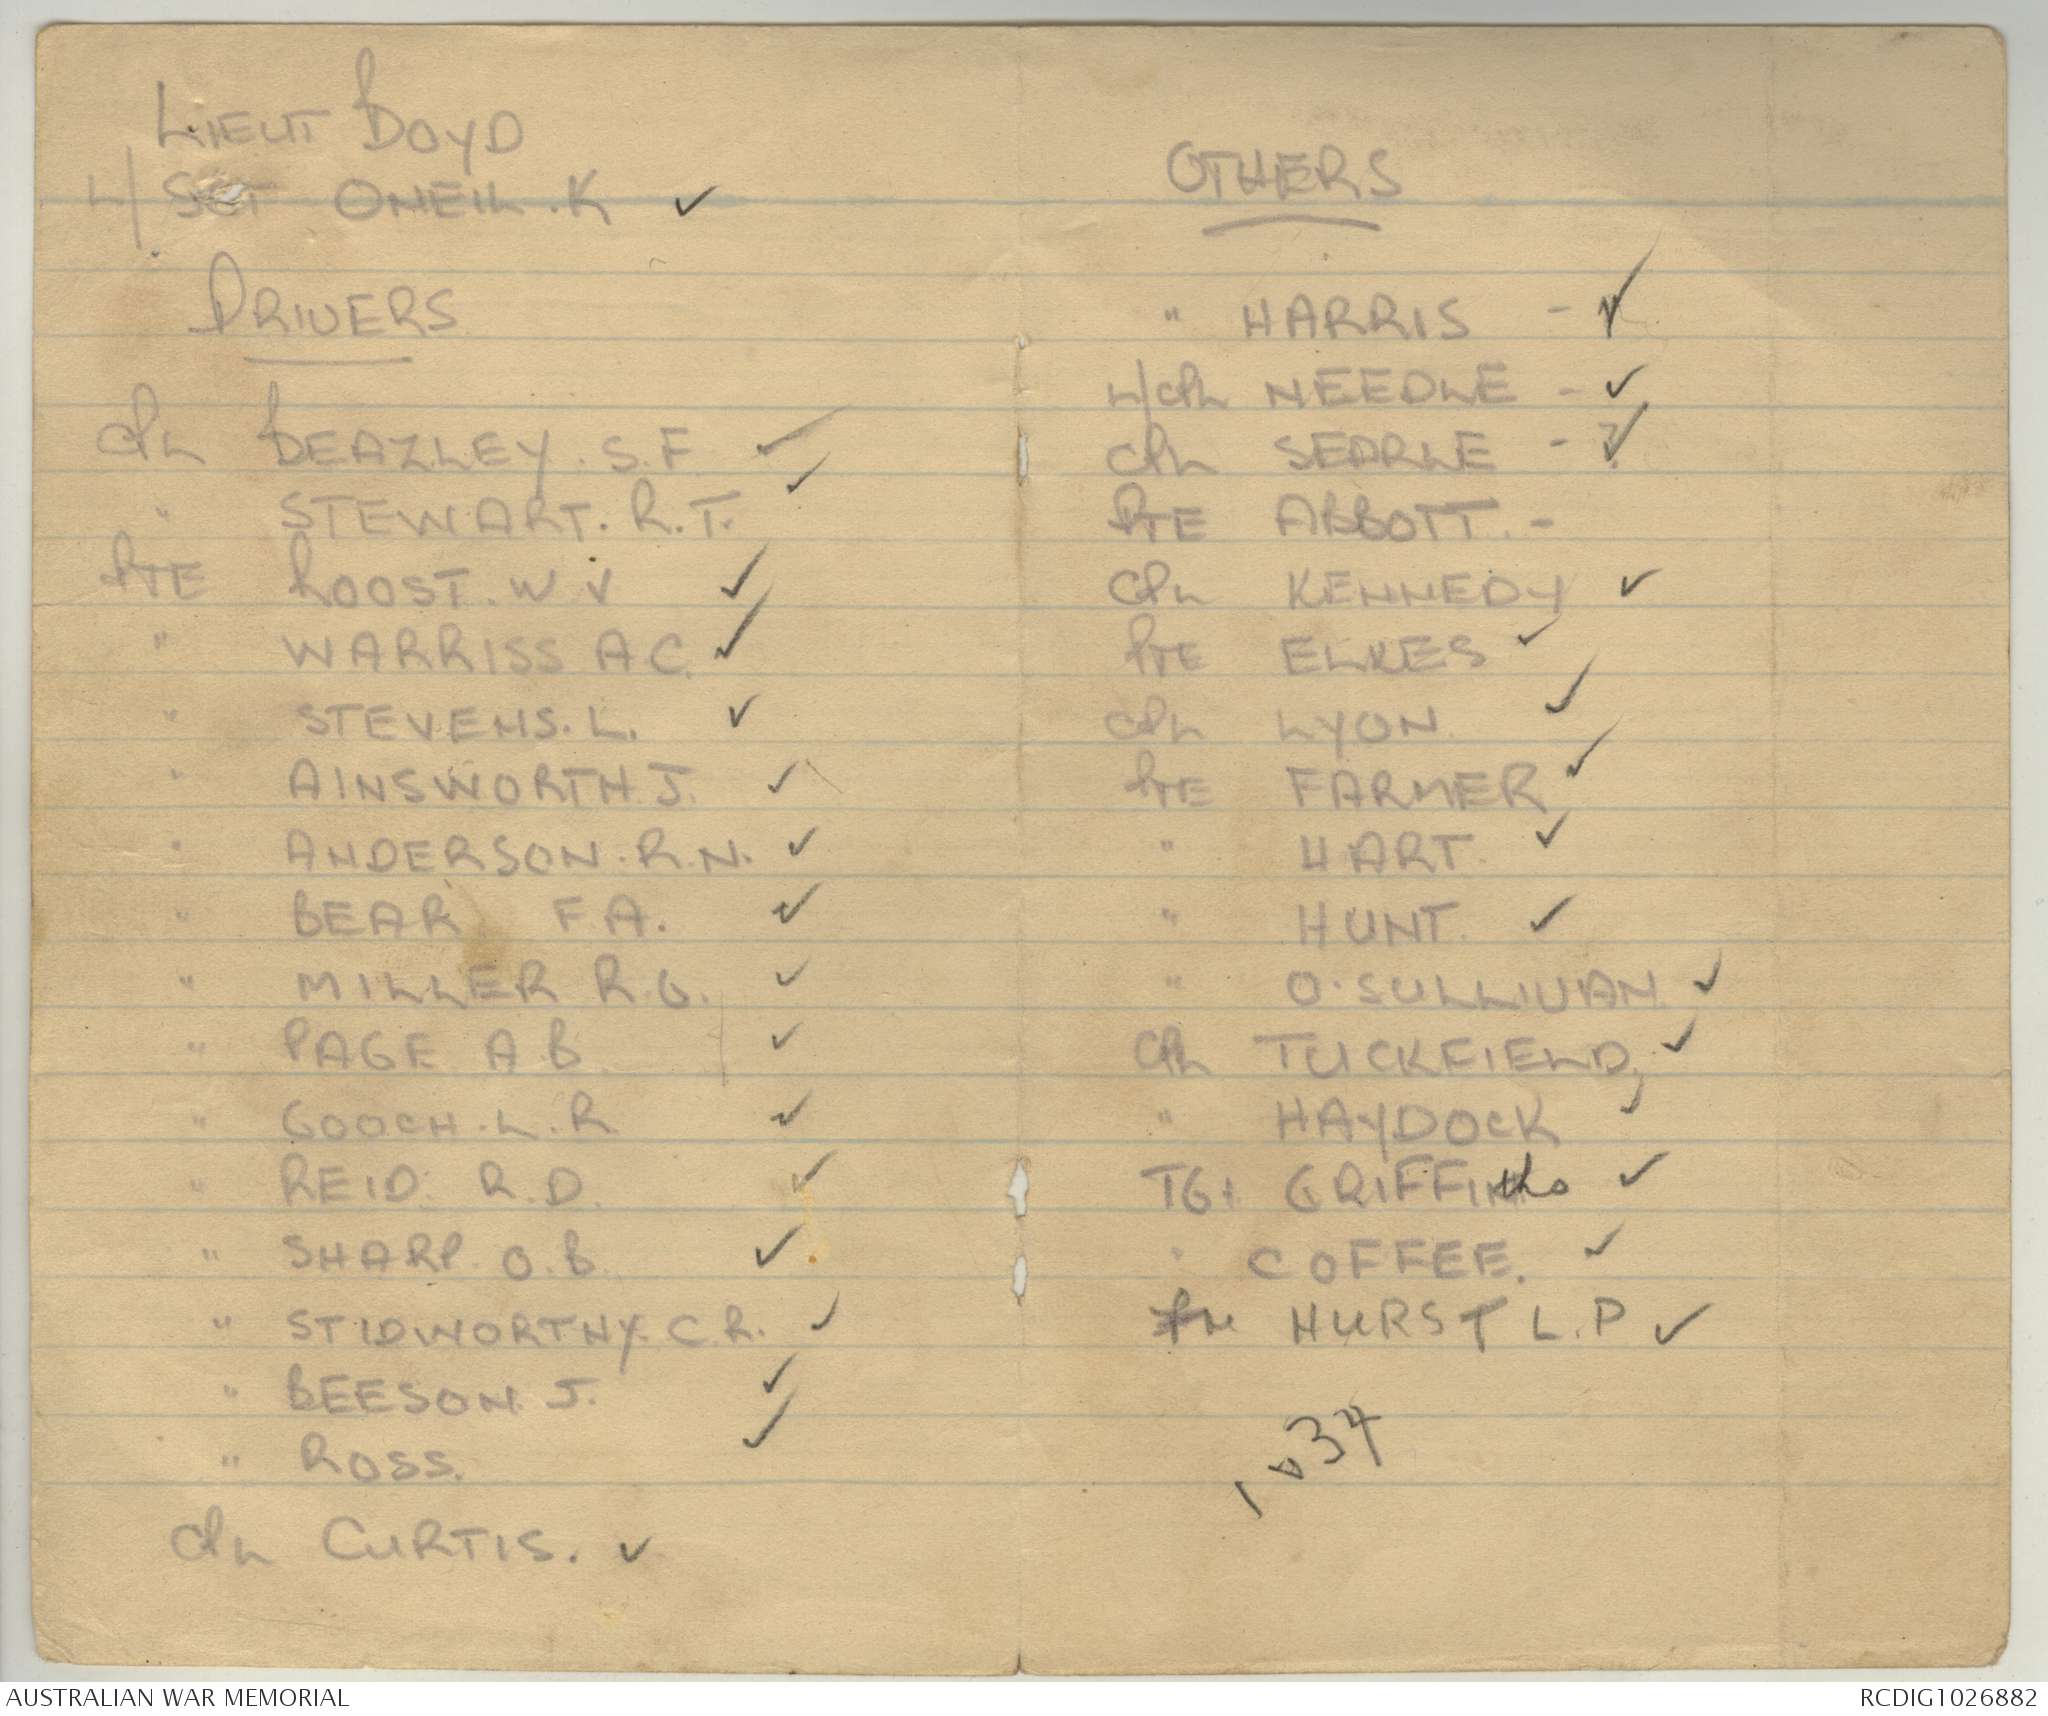 LIEUT BOYD
L/SGT ONEIL.K ✓
DRIVERS
CPL BEAZLEY. S.F. ✓
" STEWART. R.T. ✓
PTE ROOST. W V ✓
" WARRISS A C. ✓
" STEVENS. L. ✓
" AINSWORTH. J. ✓
" ANDERSON. R.N. ✓
" BEAR F.A. ✓
" MILLER R.G. ✓
" PAGE A.B. ✓
" GOOCH. L.R. ✓
" REID. R.D. ✓
" SHARP. O.B. ✓
" STIDWORTHY. C.R. ✓
" BEESON. J. ✓
" ROSS. ✓
CPL CURTIS. ✓
OTHERS
" HARRIS - ✓
L/CPL NEEDLE - ✓
CPL SEARLE - ? ✓
PTE ABBOTT. -
CPL KENNEDY ✓
PTE ELKES ✓
CPL LYON ✓
PTE FARMER ✓
" HART. ✓
" HUNT. ✓
" O'SULLIVAN ✓
CPL TUCKFIELD. ✓
" HAYDOCK ✓
TG1 GRIFFIths ✓
" COFFEE. ✓
Pte HURST L.P ✓
34